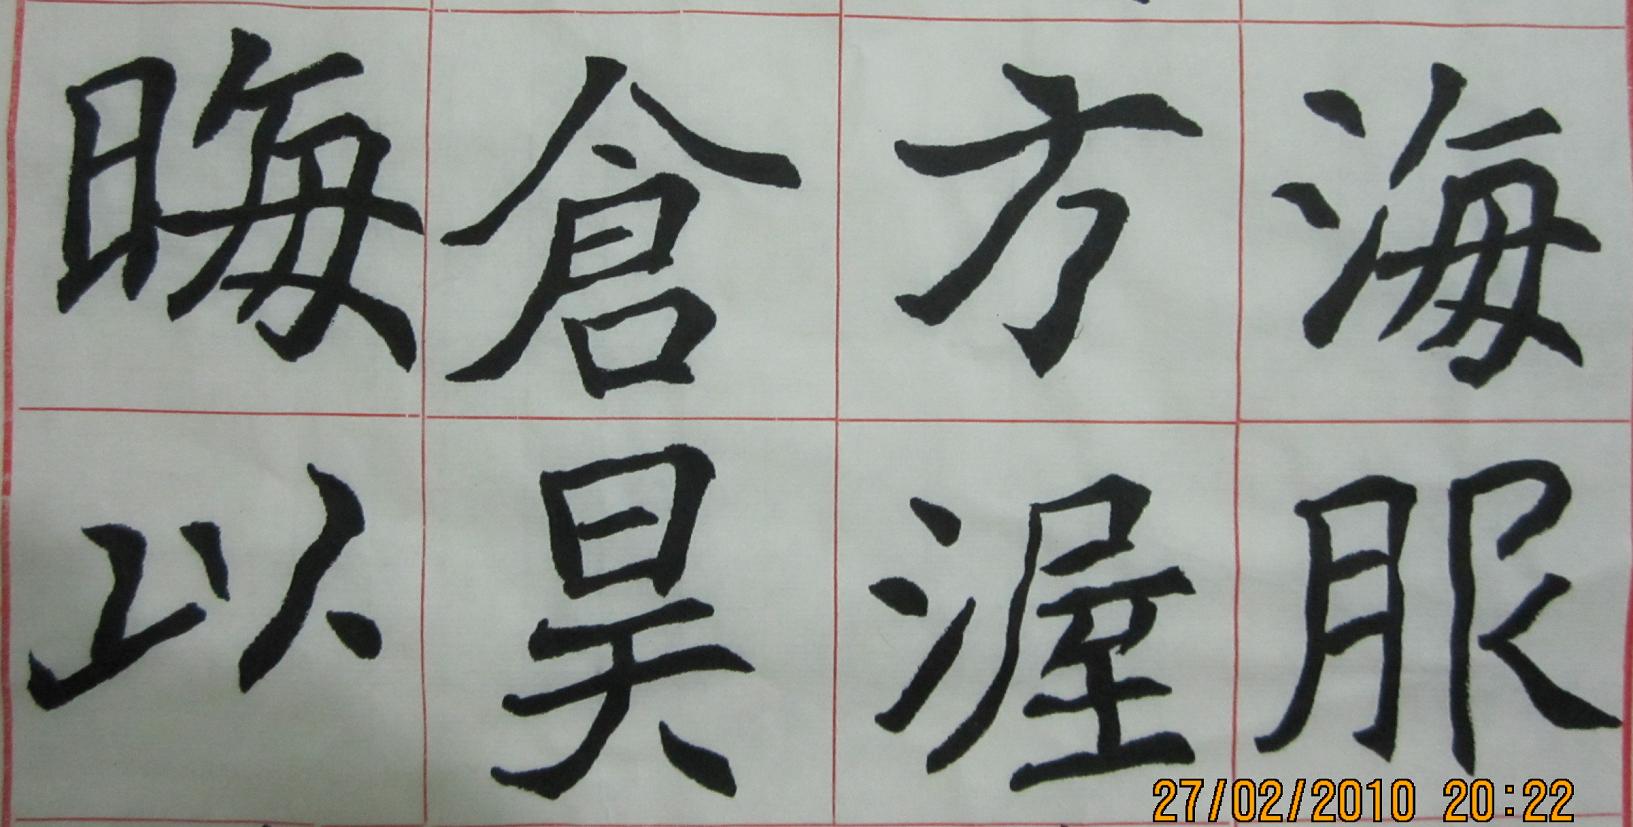 海服
方渥
倉昊
晦以
27/02/2010 20:22